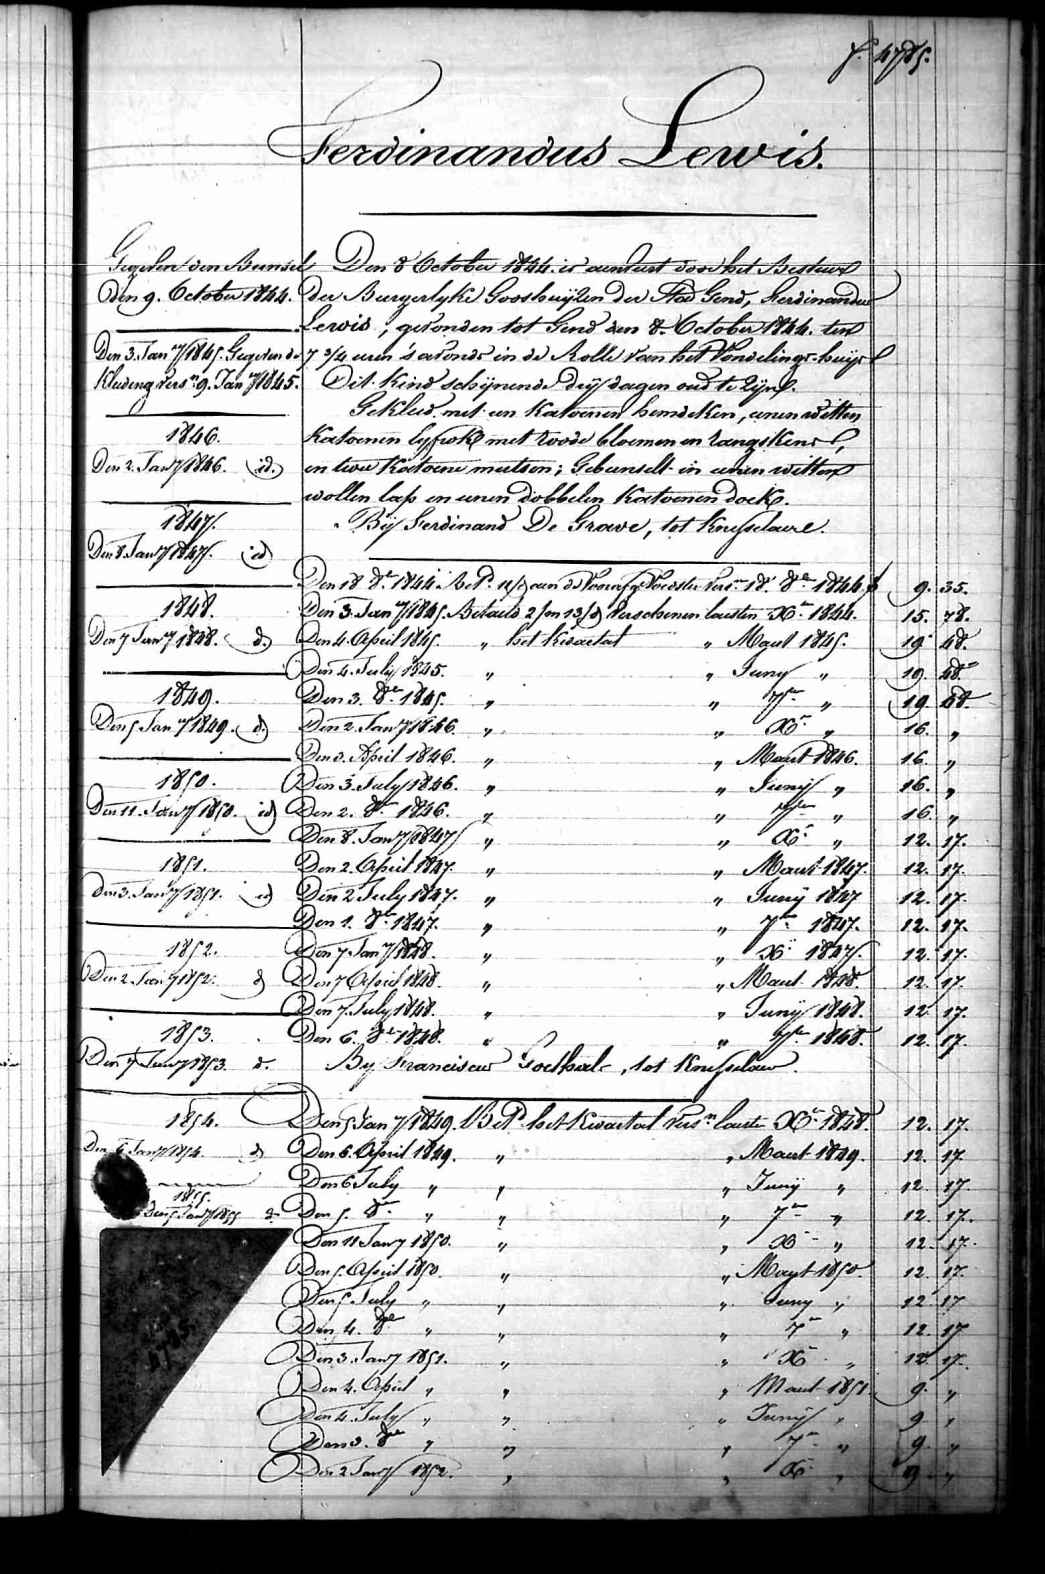 f. 4785.
Ferdinandus Lewis.
Gegeven den Bunsel
den 9. October 1844.
Den 3. Jan.ry 1845. Gegeven de
Kledeng vers.n 9. Jan.ry 1845.
1846.
Den 2. Jan.ry 1846. id.
1847.
Den 8. Jan.ry 1847. id
1848.
Den 7 Jan.ry 1848. d.
1849.
Den 5 Jan.ry 1849. d.
1850.
Den 11. Jan.ry 1850. id
1851.
Den 3. Jan.ry 1851. id
1852.
Den 2. Jan.ry 1852. d
1853.
Den 7 Jan.ry 1853. d.
1854.
Den 6 Jan.ry 1854. d
1855.
Den 5 Jan.ry 1855 d.
4785.
Den 8 October 1844. is aenveert door het Bestuer
der Burgerlyke Godshuijzen der Stad Gend, Ferdinandus
Lewis, gevonden tot Gend den 8. October 1844. ten
7 3/4 uren s'avonds in de Rolle van het Vondelings-huijs
Dit kind schijnende drij dagen oud te zijn.
Gekleed met een katoenen hemdeken, eenen witten
katoenen lyfrok met roode bloemen en rangskens,
en twee katoene mutsen; Gebunselt in eenen witten
wollen lap en eenen dobbelen katoenen doek.
Bij Ferdinand De Grave, tot Knesselaere.
Den 18 8.e 1844. Bet.d aan de Voedster vers.n 18. 8.e 1844. f 9. 35.
Den 3. Jan.ry 1845. Betaeld 2/m 13/d Verschenen laesten X.e 1844. 15. 78.
Den 4. April 1845. " het Kwartael " Maert 1845. 19 48.
Den 4. July 1845. " " Juny " 19. 48.
Den 3. 8.e 1845. " " 7.e " 19 48.
Den 2. Jan.ry 1846. " " X.e " 16. "
Den 3. April 1846. " " Maert 1846. 16. "
Den 3. July 1846. " " Junij " 16. "
Den 2. 8.e 1846. " " 7.e " 16. "
Den 8. Jan.ry 1847 " " X.e " 12. 17.
Den 2. April 1847. " " Maert 1847. 12. 17.
Den 2 July 1847. " " Junij 1847 12. 17.
Den 1. 8.e 1847. " " 7.e 1847. 12. 17.
Den 7 Jan.ry 1848. " " X.e 1847. 12. 17.
Den 7 April 1848. " " Maert 1848. 12. 17.
Den 7. July 1848. " " Junij 1848. 12 17.
Den 6. 8.e 1848. " " 7.e 1848. 12. 17.
By Franciscus Goethals, tot Knesselaer.
Den 5 Jan.ry 1849. Bet.d het Kwartael vers.n laeste X.e 1848. 12. 17.
Den 6. April 1849. " " Maert 1849. 12. 17
Den 6 July " " " Junij " 12 17
Den 5. 8.e " " " 7.e " 12. 17.
Den 11 Jan.ry 1850. " " X.e " 12. 17.
Den 5. April 1850. " " Maert 1850. 12. 17.
Den 5 July " " " Juny " 12 17
Den 4. 8.e " " " 7.e " 12. 17
Den 3. Jan.ry 1851. " " X.e " 12. 17.
Den 4. April " " " Maert 1851 9. "
Den 4. July " " " Junij " 9 "
Den 3. 8.e " " " 7.e " 9. "
Den 2 Jan.ry 1852. " " X.e " 9 "